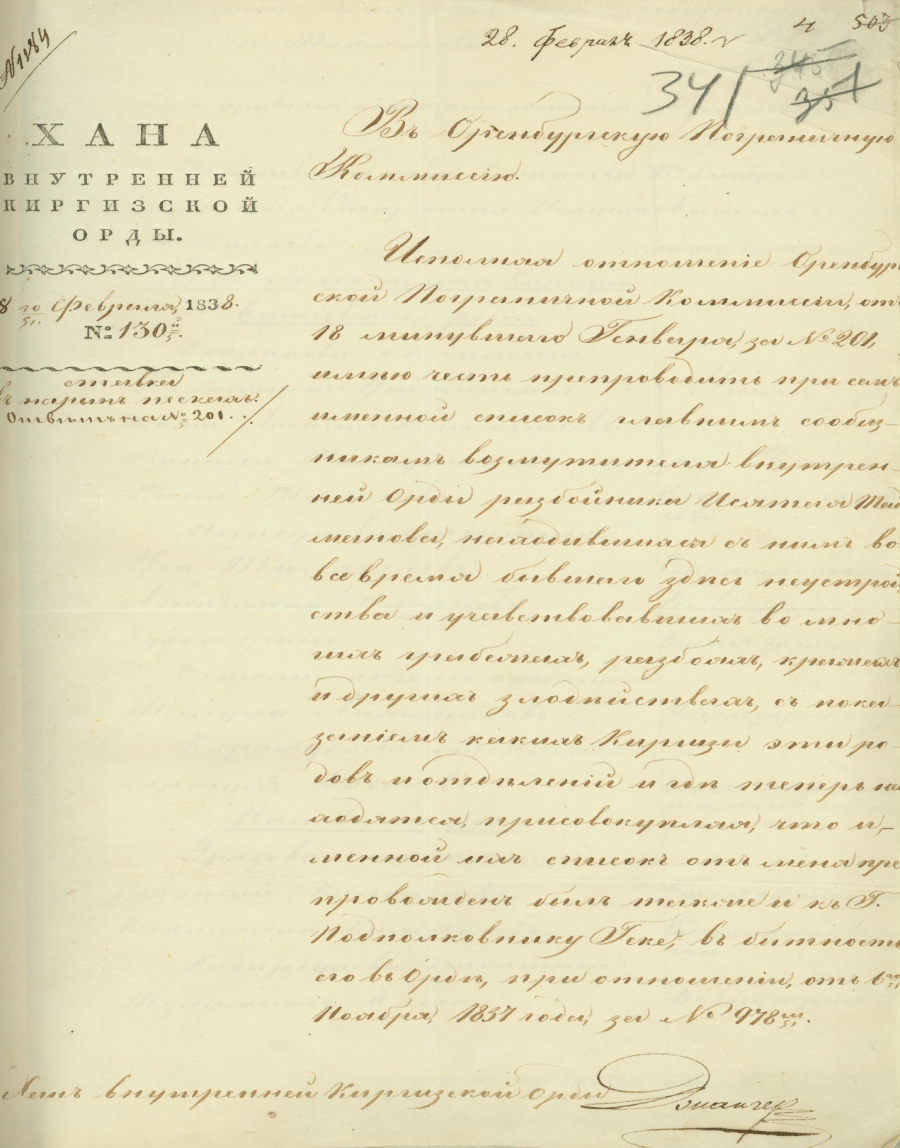 № 1184
28. Февраля 1838. г
4 503
341 345
351
ХАНА
ВНУТРЕННЕЙ
КИРГИЗСКОЙ
ОРДЫ.
8 го Февраля, 1838.
№ 130.
ставка
въ нарынъ пескахъ.
Отвѣтъ на № 201.
Въ Оренбургскую Пограничную
Коммиссію.
Исполняя отношеніе Оренбург-
ской Пограничной Коммиссіи, отъ
18 минувшаго Генваря, за № 201,
имѣю честь препроводить при семъ
именной списокъ главнымъ сообщ-
никамъ возмутителя внутрен-
ней Орды разбойника Исятая Тай
манова, находившимся съ нимъ во
все время бывшаго здѣсь неустрой
ства и участвовавшимъ во мно-
гихъ грабежахъ, разбояхъ, кражахъ
и другихъ злодѣйствахъ, съ пока-
заніемъ какихъ Киргизы эти ро-
довъ и отдѣленій и гдѣ теперь на
ходятся, присовокупляя, что и,-
менной имъ списокъ отъ меня пре
провожденъ былъ также и къ Г.
Подполковнику Геке, въ бытность
его въ Ордѣ, при отношеніи, отъ 6го
Ноября, 1837 года, за № 978.
Ханъ внутренней Киргизской Орды Джангер